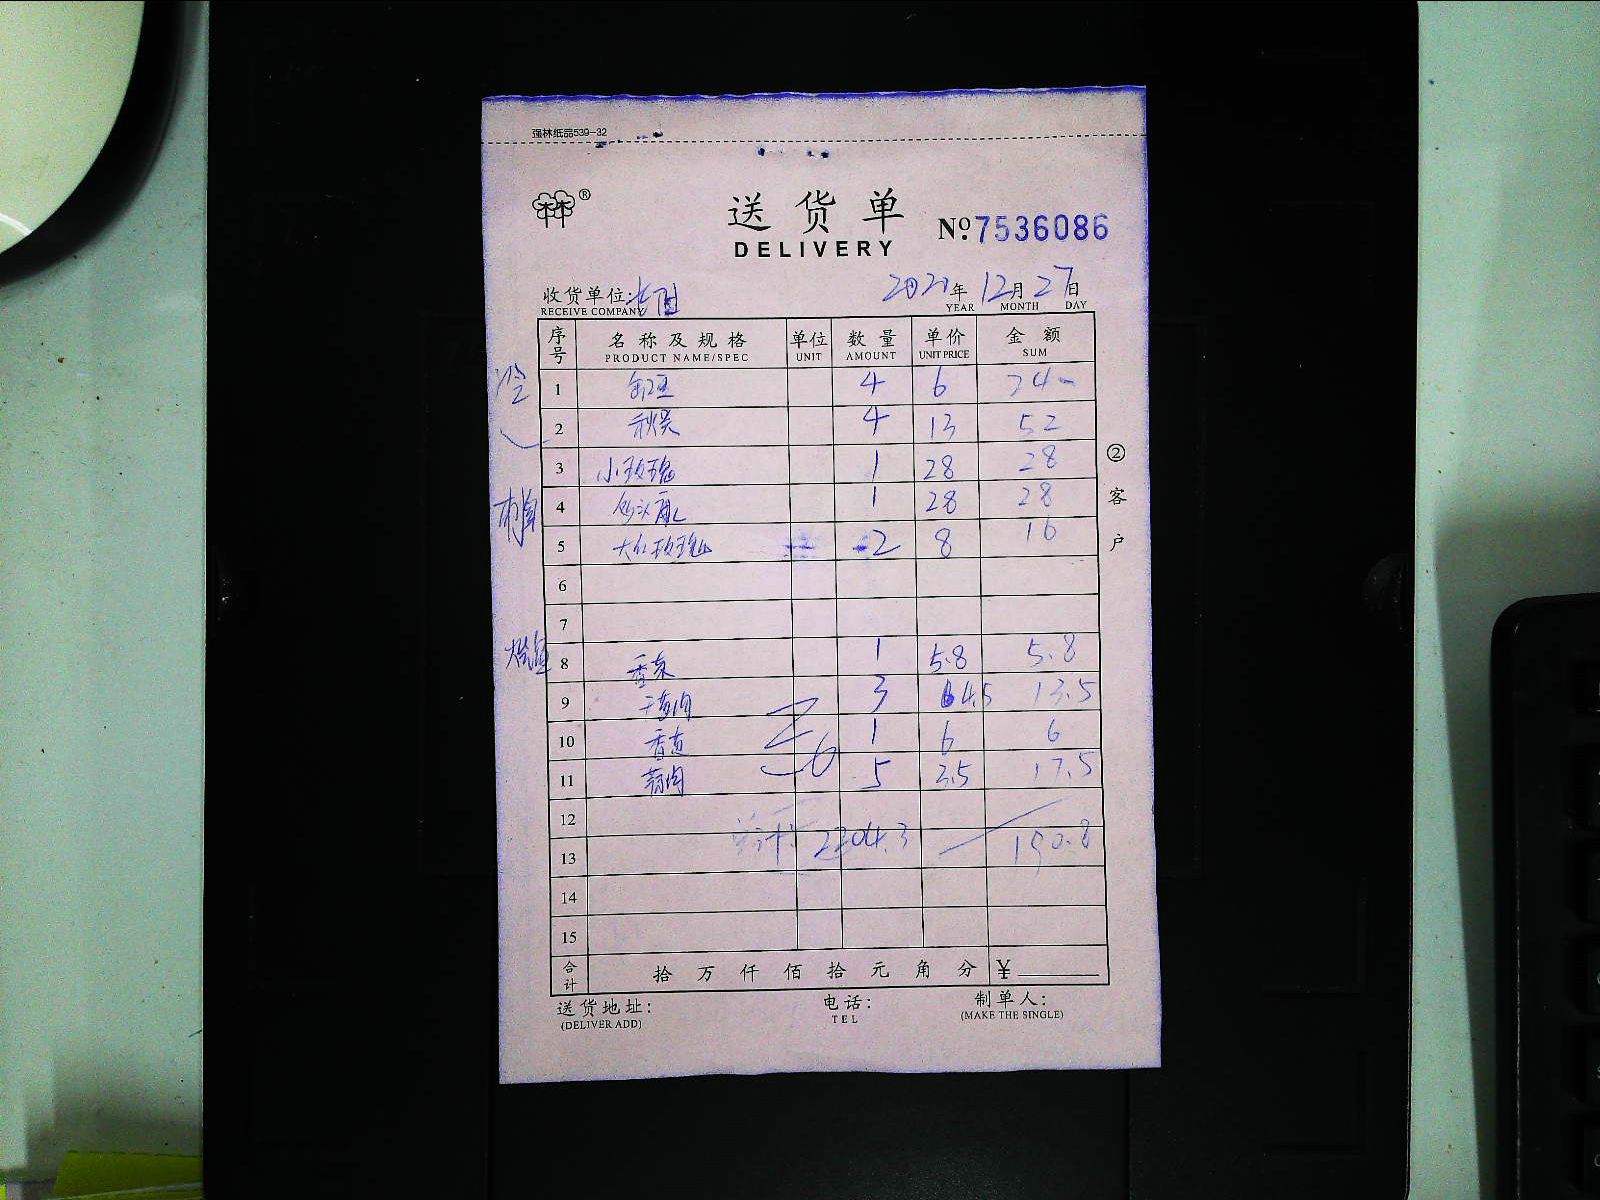 强林纸品539-32
林林®
送货单
DELIVERY
№7536086
收货单位:
RECEIVE COMPANY
2021年12月27日
YEAR MONTH DAY
序号 名称及规格 单位 数量 单价 金额
PRODUCT NAME/SPEC UNIT AMOUNT UNIT PRICE SUM
冷
1 4 6 24-
2 4 13 52
3 小玫瑰 1 28 28
4 1 28 28
5 大红玫瑰 2 8 16
6
7
8 香菜 1 5.8 5.8
9 干葱肉 3 4.5 13.5
10 香葱 1 6 6
11 蒜肉 5 3.5 17.5
12
13 190.8
14
15
合计 拾万仟佰拾元角分 ¥
②客户
送货地址:
(DELIVER ADD)
电话:
TEL
制单人:
(MAKE THE SINGLE)